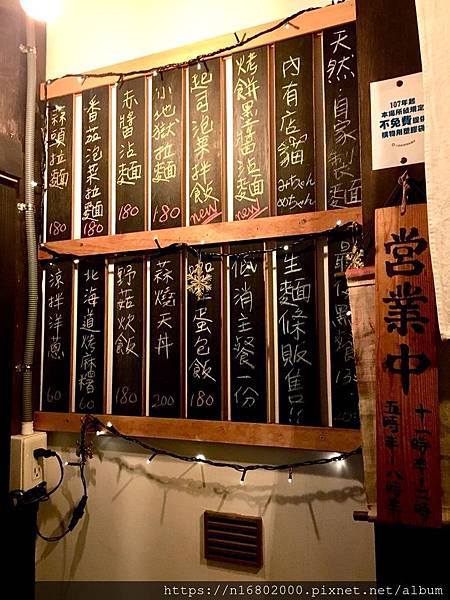 天然·自家製麵
內有店貓
みちゃん
めちゃん
烤餅黑醬沾麵
new
起司泡菜拌飯
new
小地獄拉麵
180
赤醬沾麵
180
番茄泡菜拉麵
180
蒜頭拉麵
180
生麵條販售!!
低消主餐一份
蛋包飯
180
蒜燒天丼
200
野菇炊飯
180
北海道烤麻糬
60
涼拌洋蔥
60
107年起
本場所依規定
不免費提供
購物用塑膠袋
営業中
十一時半-二時
五時半-八時半
https://n16802000.pixnet.net/album